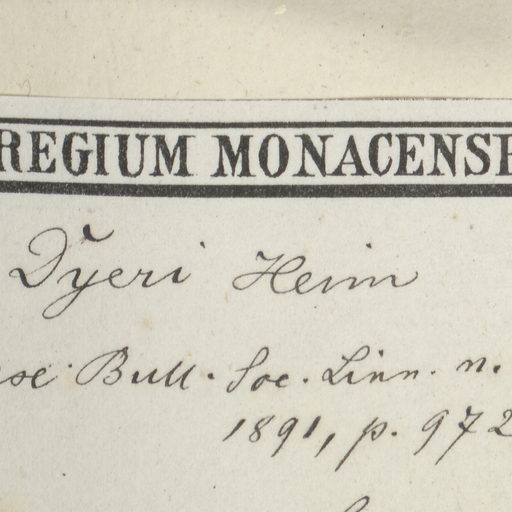 REGIUM MONACENSE
Dyeri Heim
Bull. Soc. Linn. n.
1891, p. 972